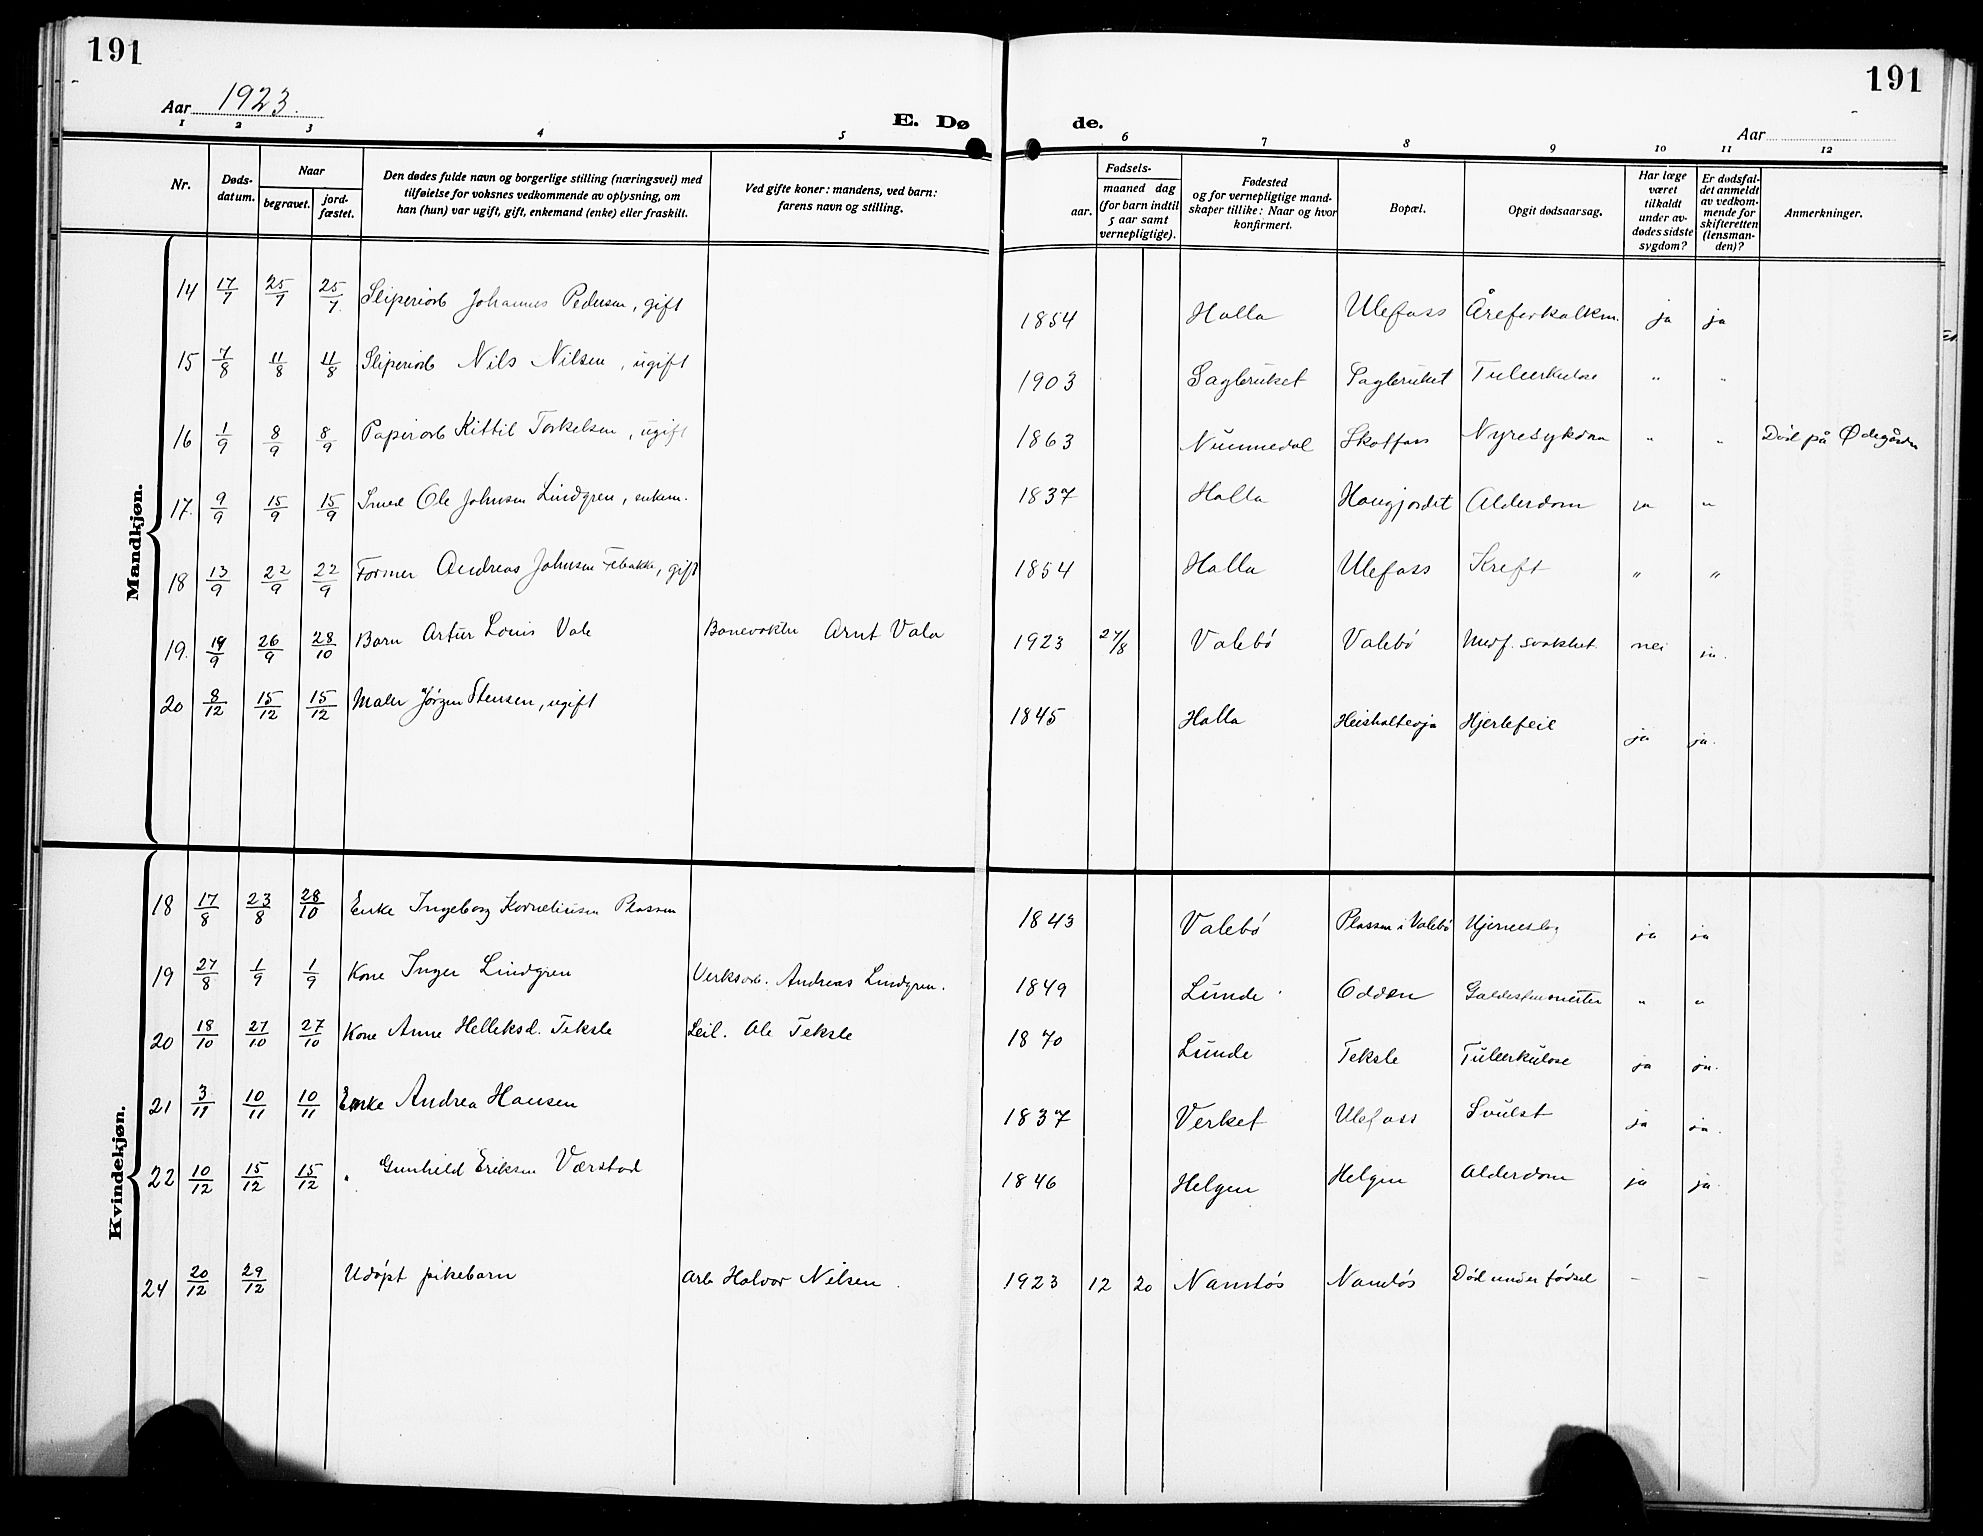 191
191
Aar 1923.
E. Dø de.
Aar
1 2 3 4 5 6 7 8 9 10 11 12
Nr.
Døds-
datum.
Naar
begravet.
jord-
fæstet.
Den dødes fulde navn og borgerlige stilling (næringsvei) med
tilføielse for voksnes vedkommende av oplysning, om
han (hun) var ugift, gift, enkemand (enke) eller fraskilt.
Ved gifte koner: mandens, ved barn:
farens navn og stilling.
Fødsels-
aar.
maaned dag
(for barn indtil
5 aar samt
vernepligtige).
Fødested
og for vernepligtige mand-
skaper tillike: Naar og hvor
konfirmert.
Bopæl.
Opgit dødsaarsag.
Har læge
været
tilkaldt
under av-
dødes sidste
sygdom?
Er dødsfal-
det anmeldt
av vedkom-
mende for
skifteretten
(lensman-
den)?
Anmerkninger.
Mandkjøn.
14 17/7 25/7 25/7 Sliperiarb Johannes Pedersen, gift 1854 Holla Ulefoss Åreforkalkn. ja ja
15 7/8 11/8 11/8 Sliperiarb Nils Nilsen, ugift 1903 Sagbruket Sagbruket Tuberkulose " "
16 1/9 8/9 8/9 Papirarb Kittil Torkelsen, ugift 1863 Nummedal Skotfoss Nyresykdom " " Død på Ødegården
17. 9/9 15/9 15/9 Smed Ole Johnsen Lindgren, enkem. 1837 Holla Haugjordet Alderdom ja "
18 13/9 22/9 22/9 Former Andreas Johnsen, gift 1854 Holla Ulefoss Kreft " "
19. 19/9 26/9 28/10 Barn Artur Louis Vale Banevokter Arnt Vala 1923 27/8 Valebö Valebö Medf. svakhet nei ja.
20 8/12 15/12 15/12 Maler Jörgen Stensen, ugift 1845 Holla Heisholtevja Hjertefeil ja ja.
Kvindekjøn.
18 17/8 23/8 28/10 Enke Ingeborg Korneliusen Plassen 1843 Valebö Plassen i Valebö Hjerneslag ja ja
19 27/8 1/9 1/9 Kone Inger Lindgren Verksarb. Andreas Lindgren. 1849 Lunde Odden Galdestensmerter " "
20 18/10 27/10 27/10 Kone Anne Helleksd. Teksle Leil. Ole Teksle 1870 Lunde Teksle Tuberkulose ja ja.
21 3/11 10/11 10/11 Enke Andrea Hansen 1837 Verket Ulefoss Svulst ja ja.
22 10/12 15/12 15/12 " Gunhild Eriksen Værstad 1846 Helgen Helgen Alderdom ja ja.
24 20/12 29/12 Udöpt pikebarn Arb Halvor Nilsen. 1923 12 20 Namlös Namlös Död under födsel — —